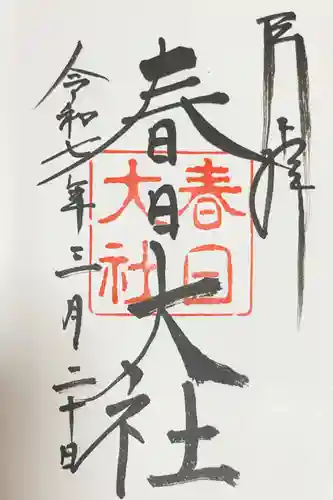 奉拝
春日大社
春日
大社
令和七年三月二十日